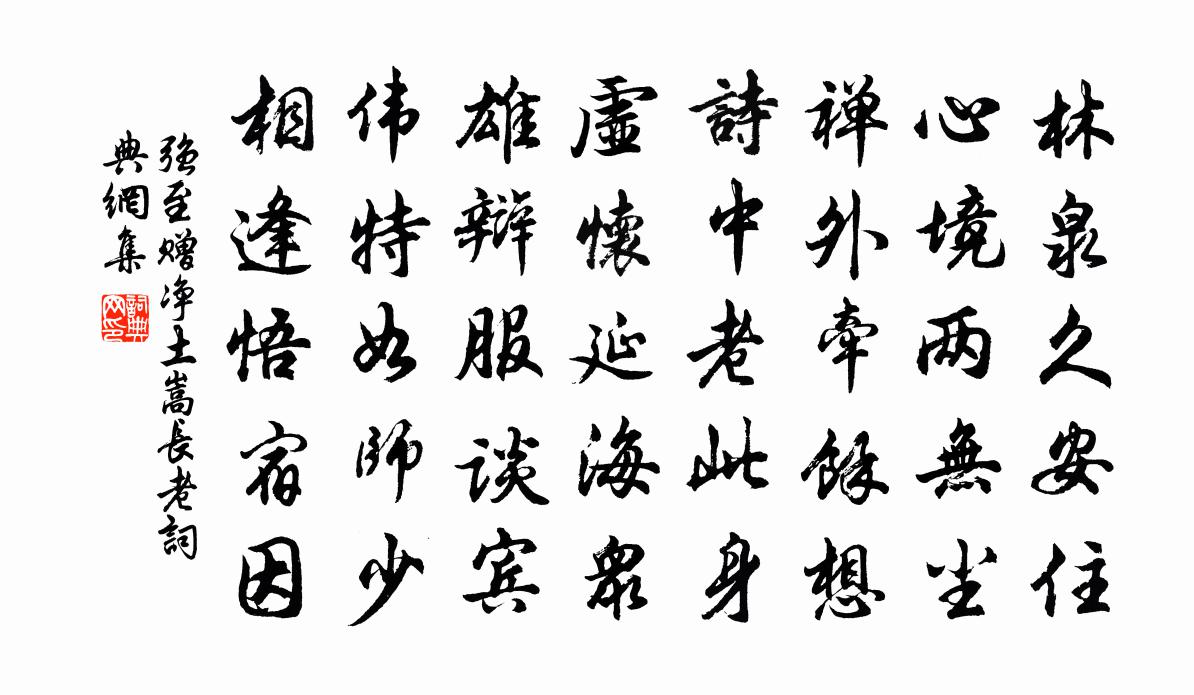 林泉久安住
心境两無尘
禅外牵餘想
詩中老此身
虛懷延海衆
雄辩服谈宾
伟特如师少
相逢悟宿因
强至赠净土嵩長老詞
典網集
詞典网印